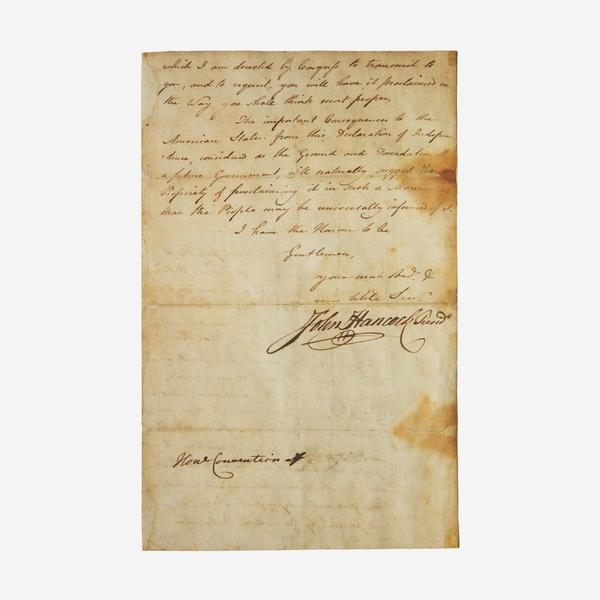 which I am directed by Congress to transmit to
you, and to request, you will have it proclaimed in
the Way, you shall think most proper.
The important Consequences to the
American States from this Declaration of Indepen-
dence, considered as the Ground and Foundation
a future Government, will naturally suggest the
Propriety of proclaiming it in such a Mann
that the People may be universally informed of it.
I have the Honour to be
Gentlemen,
your most Obed. &
very hble Ser.
John Hancock Presidt
Honl. Convention of